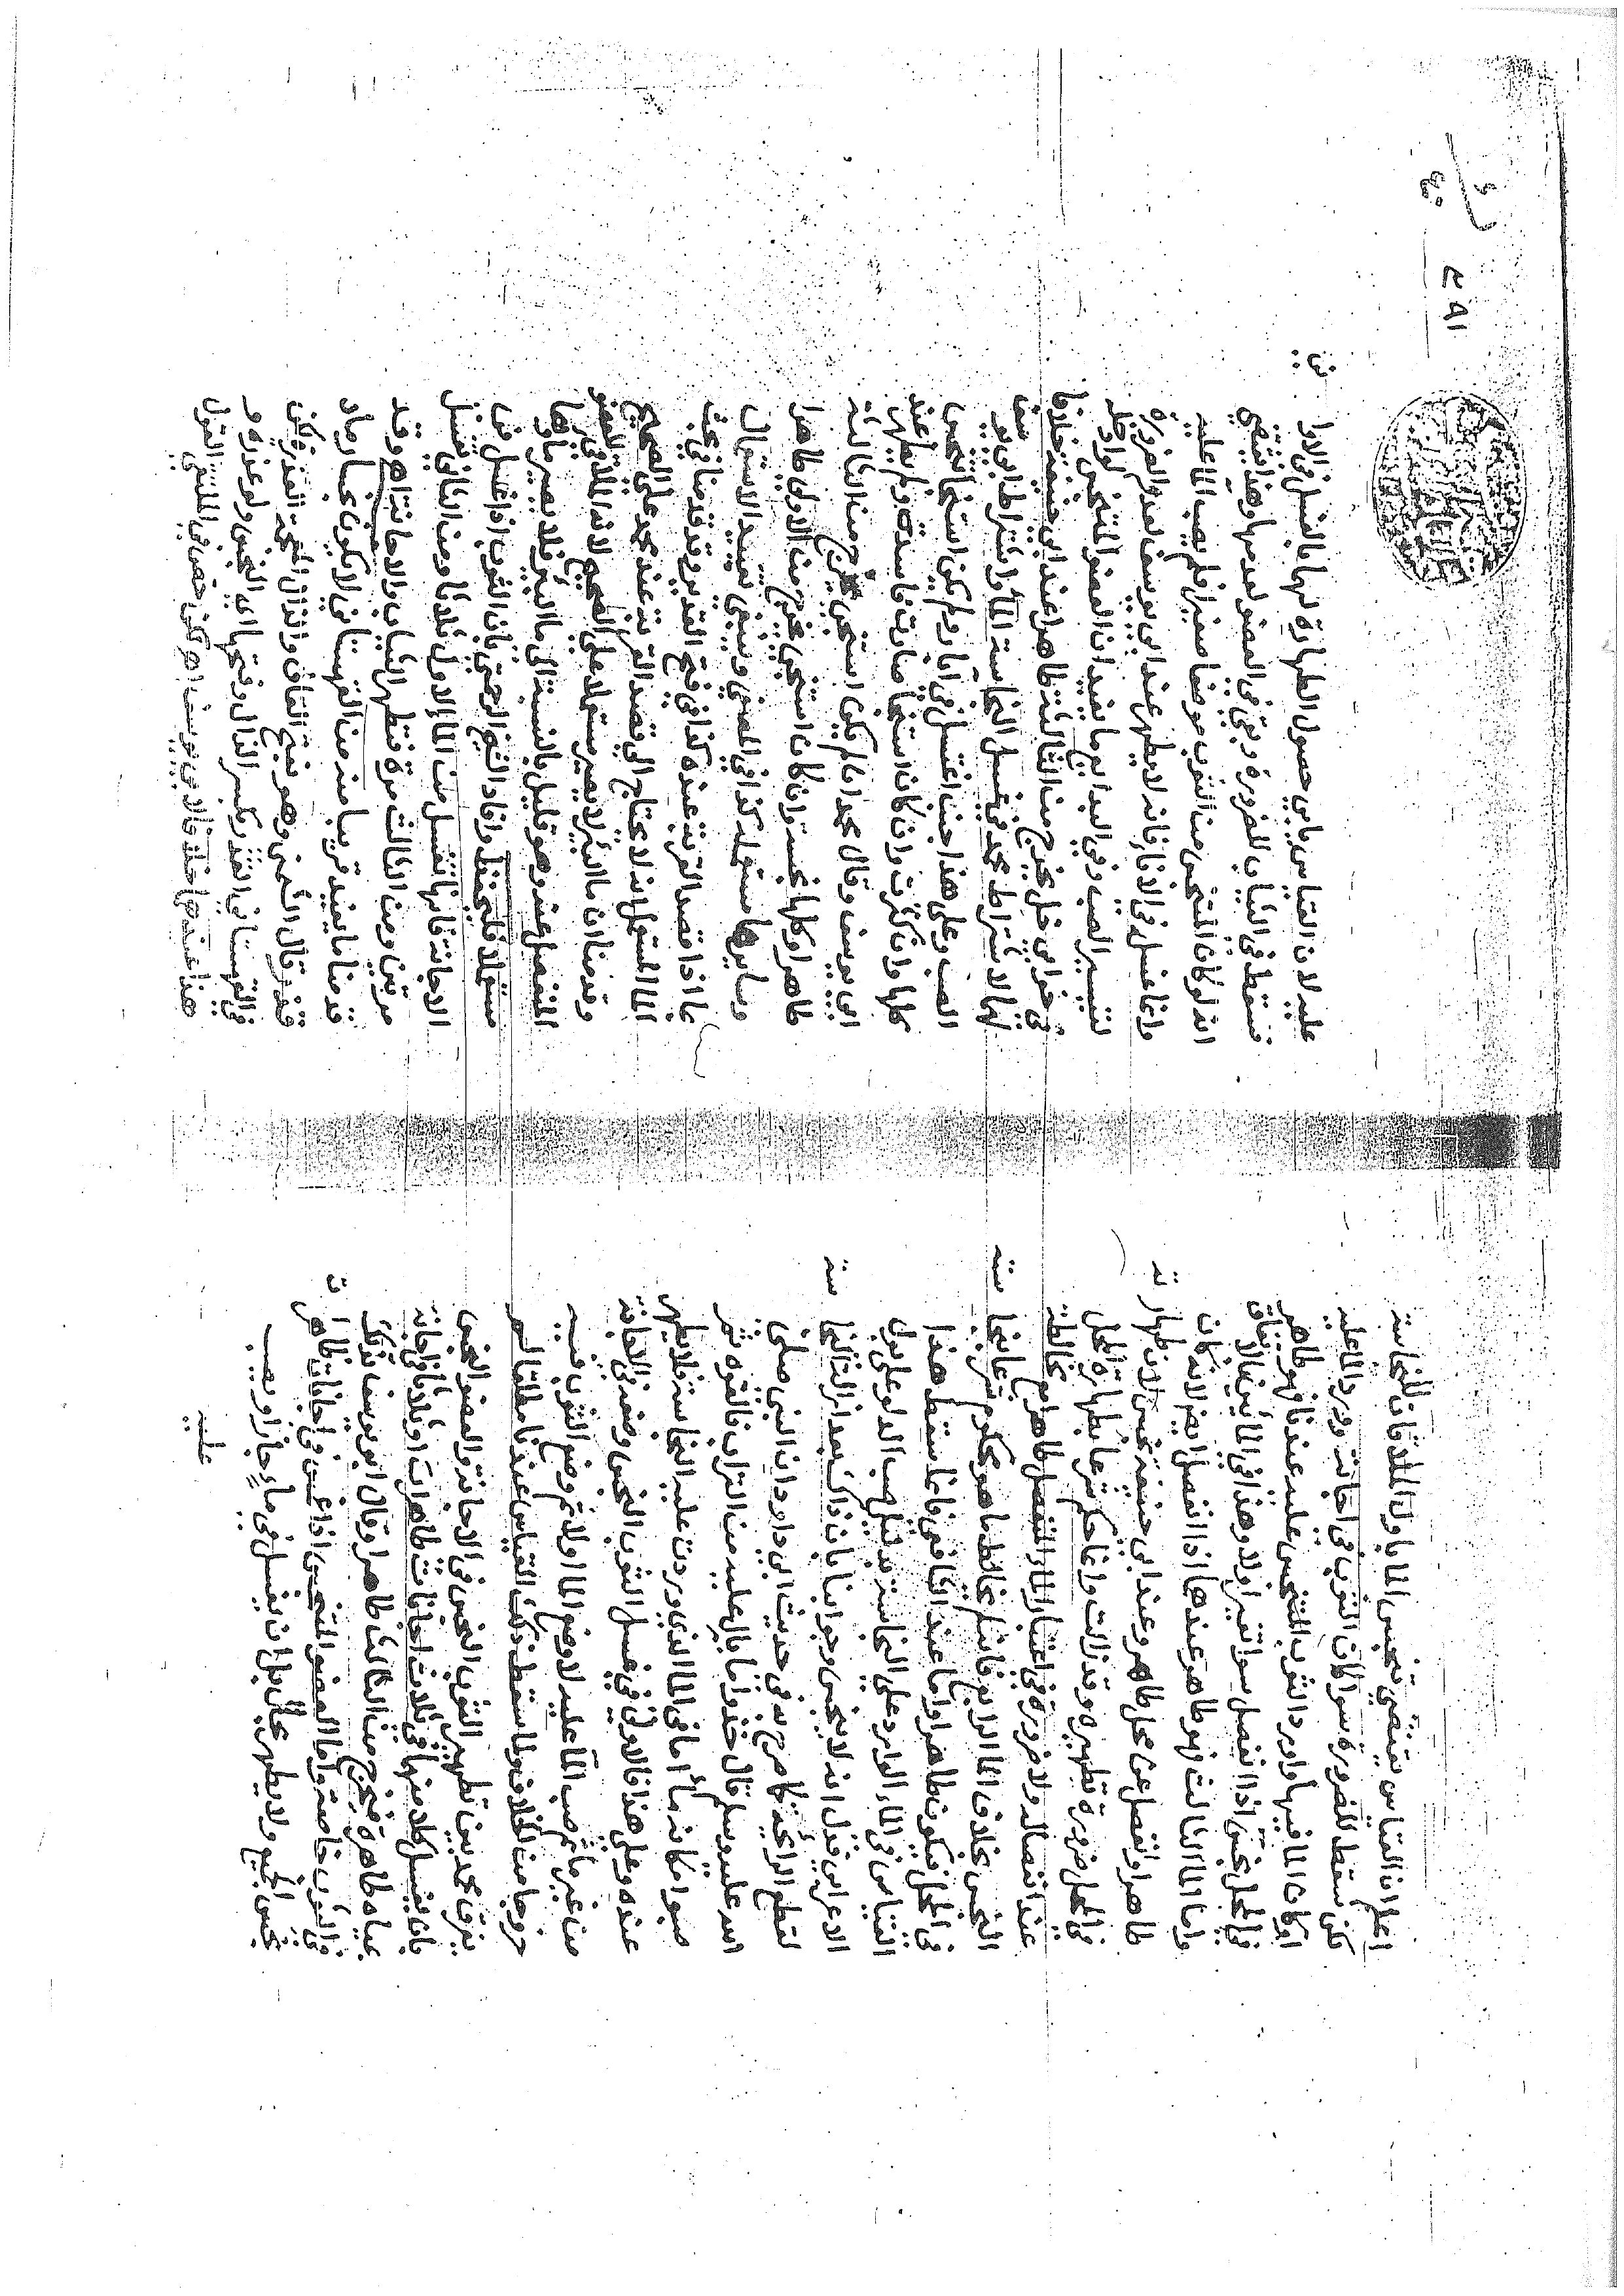 اعلم ان القياس يقتضي تنجس الما باول الملاقات للنجاسة
لكن سقط للضرورة سوا كان الثوب في اجانة وورد الما عليه
او كان الما فيها وورد الثوب المتنجس عليه عندنا فهو طاهر
في المحل نجس اذا انفصل سوا تغير او لا وهذا في المائين بالاتفاق
واما الما الثالث فهو طاهر عندهما اذا انفصل ايضا لانه كان
طاهرا وانفصل عن محل طاهر وعند ابي حنيفة نجس لان طهارته
في المحل ضرورة تطهيره وقد زالت وانما حكم شرعا بطهارة المحل
عند انفصاله ولا ضرورة في اعتبار الما المنفصل طاهرا مع مخالطة
النجس بخلاف الما الرابع فانه لم يخالط ما هو محكوم شرعا بنجاسته
في المحل فيكون طاهرا واما عند الشافعي فانما سقط هذا
القياس في الماء الوارد على النجاسة بدليل صب الدلو على بول
الاعرابي فدل انه لا ينجس وجوابنا بان ذاك بعد اثر النجاسة
لقطع الرائحة كما صرح به في حديث ابي داود ان النبي صلى
الله عليه وسلم قال خذوا ما بال عليه من التراب فالقوه ثم
صبوا مكانه ماء اما في الما الذي وردت عليه النجاسة فلا يطهر
عنده وعلى هذا فالاولى في غسل الثوب النجس وضعه في الاجانة
من غير ماء ثم صب الماء عليه لا وضع الما اولا ثم وضع الثوب فيه
خروجا من الخلاف ولما سقط ذلك القياس عندنا مطلقا لم
يفرق محمد بين تطهير الثوب النجس في الاجانة والعضو النجس
بان يغسل كلا منها في ثلاث اجانات طاهرات او ثلاثا في اجانة
بمياه طاهرة فيخرج من الثالث طاهرا وقال ابو يوسف بذلك
في الثوب خاصة واما العضو المتنجس اذا غمس في اجانات طاهرات
نجس الجميع ولا يطهر بحال بل ان يغسل في ماء جار او يصب
عليه
عليه لان القياس يابى حصول الطهارة لهما بالغسل في الاواني
فسقط في الثياب للضرورة وبقي في العضو لعدمها وهذا يقتضي
انه لو كان المتنجس من الثوب موضعا صغيرا فلم يصب الما عليه
وانما غسل في الاناء فانه لا يطهر عند ابي يوسف لعدم الضرورة
لتيسير الصب وفي البدايع ما يفيد ان العضو المتنجس لو ادخل
في خوابي خل يخرج من الثالثة طاهرا عند ابي حنيفة خلافا
لهما لاشتراط محمد في غسل النجاسة الما واشتراط ابي يوسف
الصب وعلى هذا جنب اغتسل في آبار ولم يكن استنجا تنجس
كلها وان كثرت وان كان استنجا صارت فاسدة ولم يطهر عند
ابي يوسف وقال محمد ان لم يكن استنجى يخرج من الثالثة
طاهرا وكلها نجسة وان كان استنجى يخرج من الاولى طاهرا
وسايرها مستعملة كذا في المصفى وينبغي تقييد الاستعمال
بما اذا قصد القربة عنده كذا في فتح القدير وقد قدمنا في بحث
الما المستعمل انه لا يحتاج الى قصد القربة عند محمد على الصحيح
وقدمنا ان ما البئر لا يصير مستعملا على الصحيح لان الملاقي للعضو
المنفصل عنه وهو قليل بالنسبة الى ما البئر فلا يصير ماؤها
مستعملا فليحفظ وافاد الشيخ الرحمتي بان الثوب اذا غسل في
الاجانة فانها تغسل من الما الاول ثلاثا ومن الثاني تغسل
مرتين ومن الثالث مرة فتطهر الثياب والاجانة اهـ وقد
قدمنا ما يفيد قريبا منه من القهستاني
فقدر قال الشمني وهو بفتح القاف والذال المعجمة القذر لكن
في القهستاني القذر بكسر الذال وفتحها اي النجس ولو عذره
هذا عندهما خلافا لابي يوسف اهـ